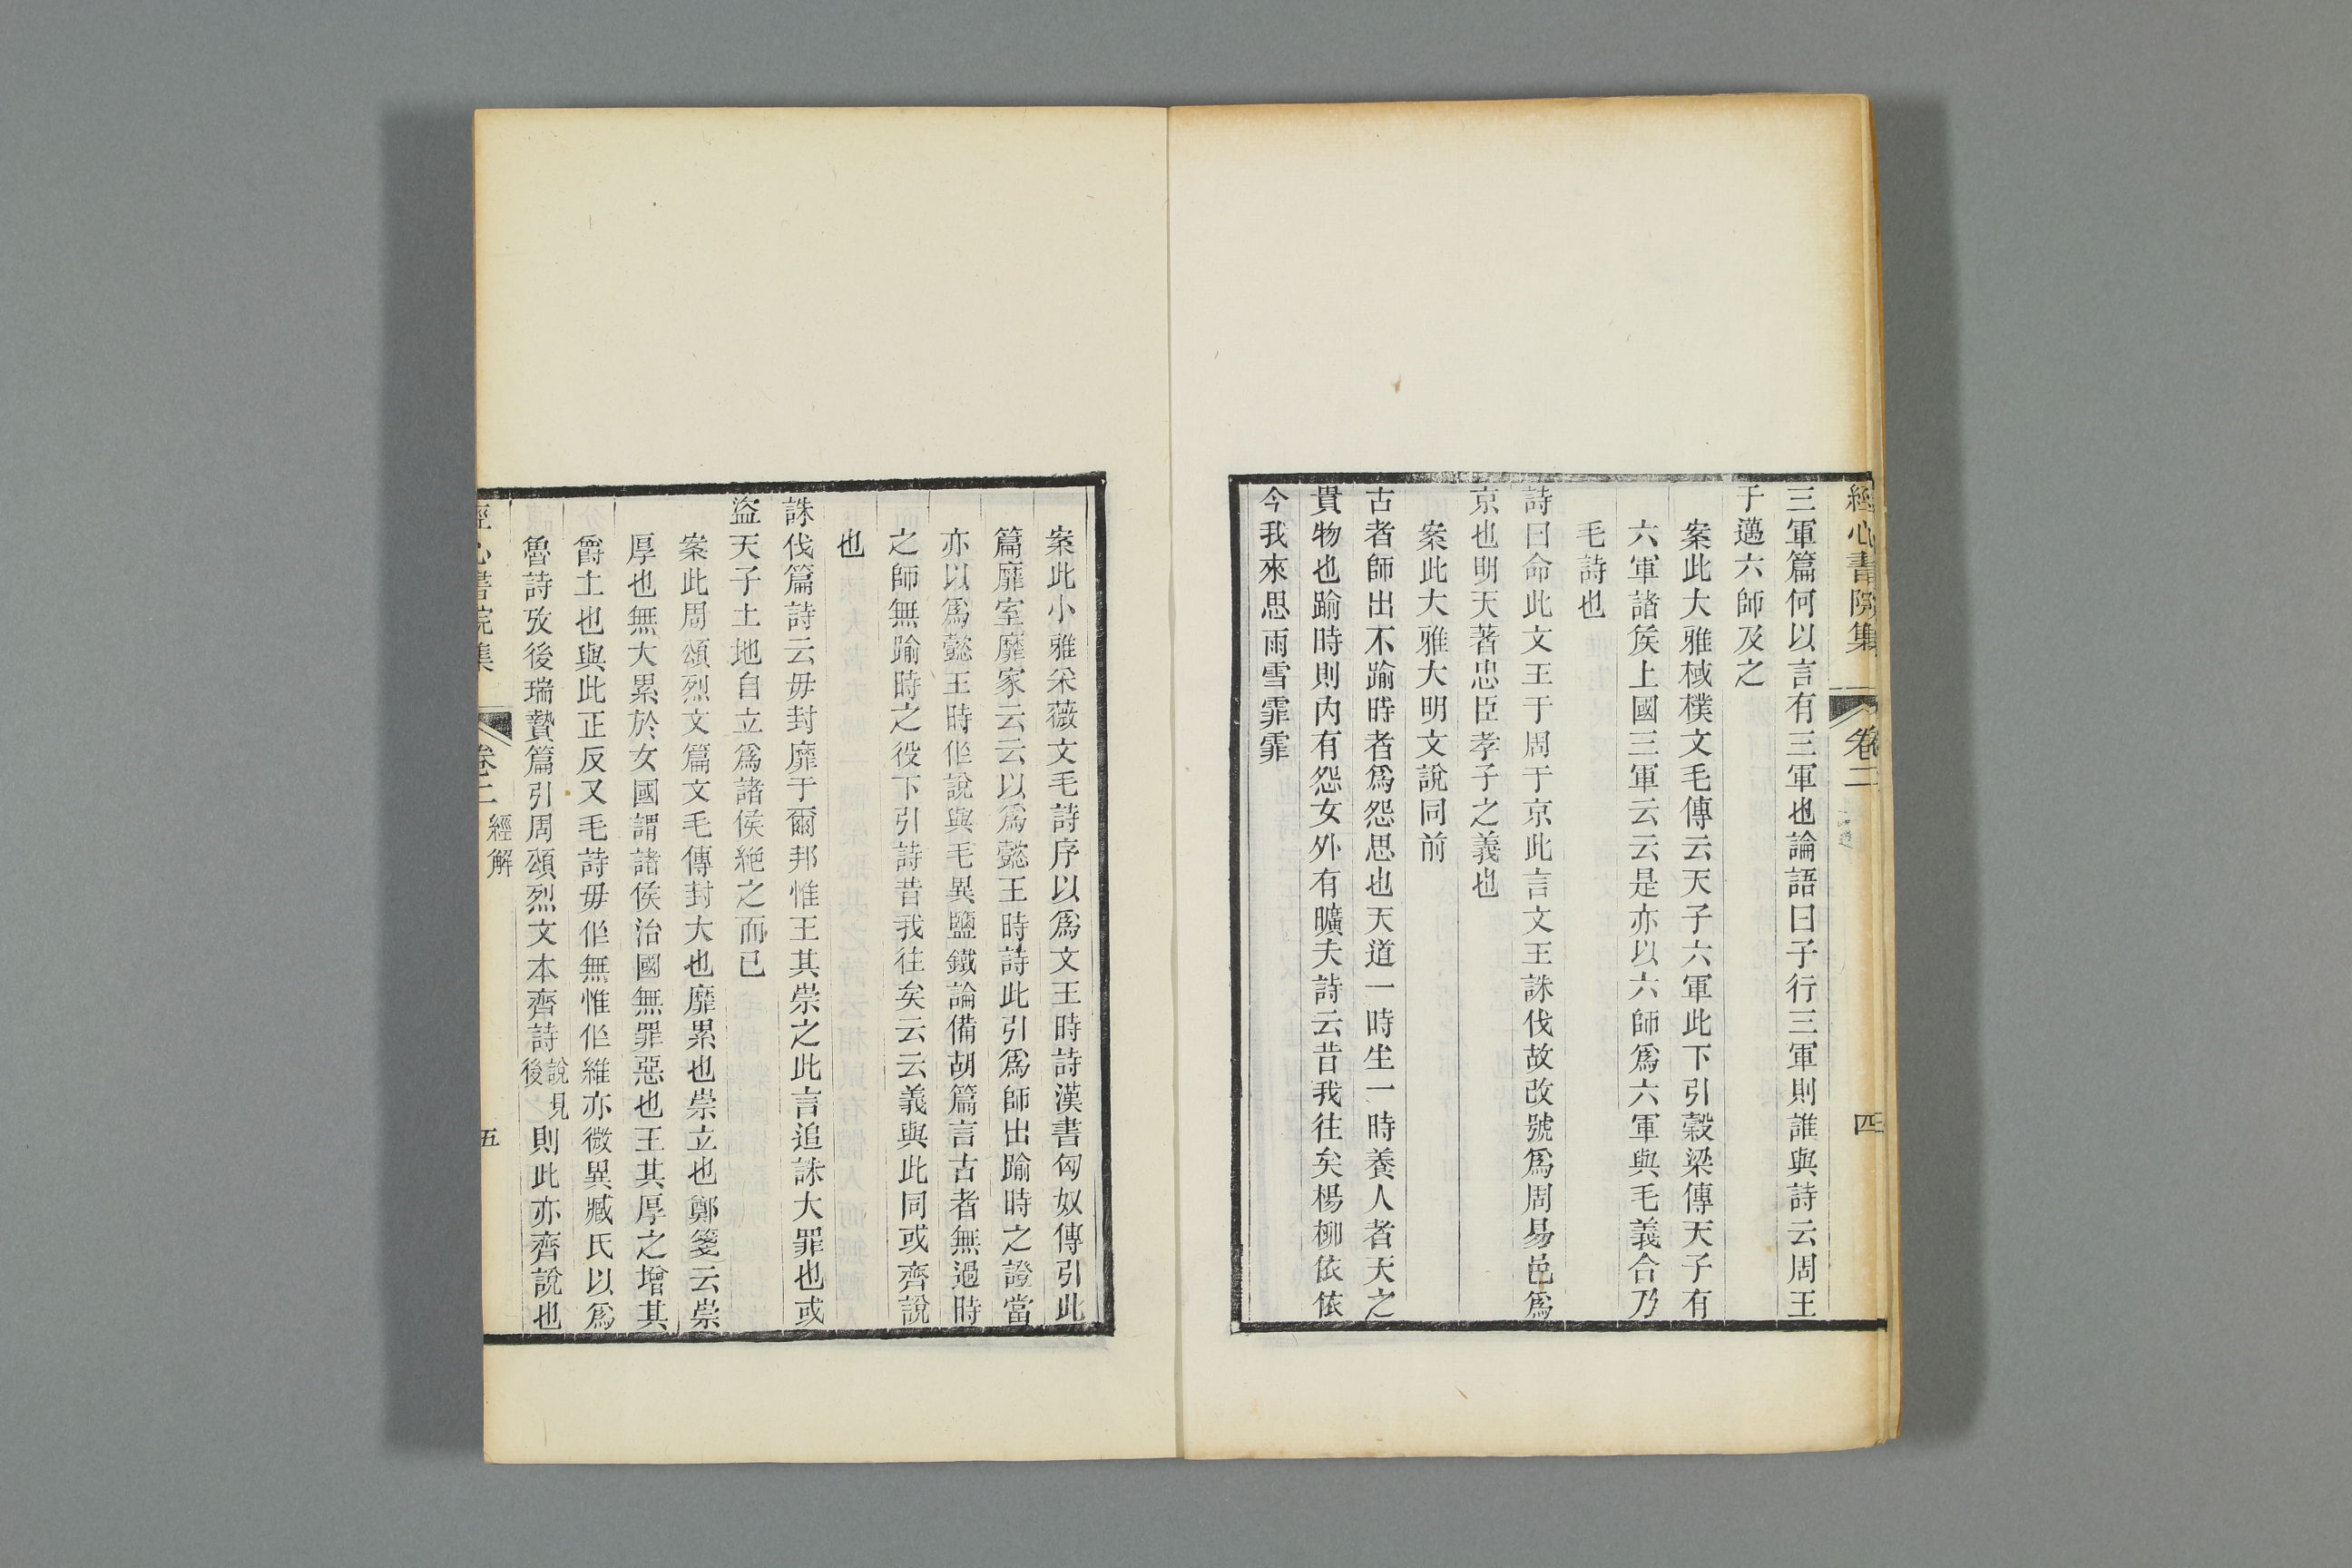 經心書院集 卷二 四
三軍篇何以言有三軍也論語曰子行三軍則誰與詩云周王
于邁六師及之
案此大雅棫樸文毛傳云天子六軍此下引穀梁傳天子有
六軍諸矦上國三軍云云是亦以六師爲六軍與毛義合乃
毛詩也
詩曰命此文王于周于京此言文王誅伐故改號爲周易邑爲
京也明天著忠臣孝子之義也
案此大雅大明文說同前
古者師出不踰時者爲怨思也天道一時生一時養人者天之
貴物也踰時則內有怨女外有曠夫詩云昔我往矣楊柳依依
今我來思雨雪霏霏
案此小雅采薇文毛詩序以爲文王時詩漢書匈奴傳引此
篇靡室靡家云云以爲懿王時詩此引爲師出踰時之證當
亦以爲懿王時作說與毛異鹽鐵論備胡篇言古者無過時
之師無踰時之役下引詩昔我往矣云云義與此同或齊說
也
誅伐篇詩云毋封靡于爾邦惟王其崇之此言追誅大罪也或
盜天子土地自立爲諸侯絕之而已
案此周頌烈文篇文毛傳封大也靡累也崇立也鄭箋云崇
厚也無大累於女國謂諸侯治國無罪惡也王其厚之增其
爵土也與此正反又毛詩毋作無惟作維亦微異臧氏以爲
魯詩攷後瑞贄篇引周頌烈文本齊詩說見後則此亦齊說也
經心書院集 卷二 經解 五